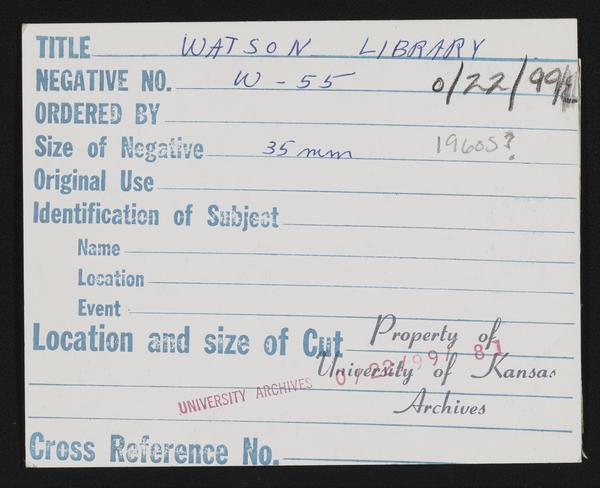 TITLE WATSON LIBRARY
NEGATIVE NO. W-55 0/22/99/
ORDERED BY
Size of Negative 35mm 1960S?
Original Use
Identification of Subject
Name
Location
Event
Location and size of Cut
Property of
University of Kansas
Archives
0/22/99/ 81
UNIVERSITY ARCHIVES
Cross Reference No.